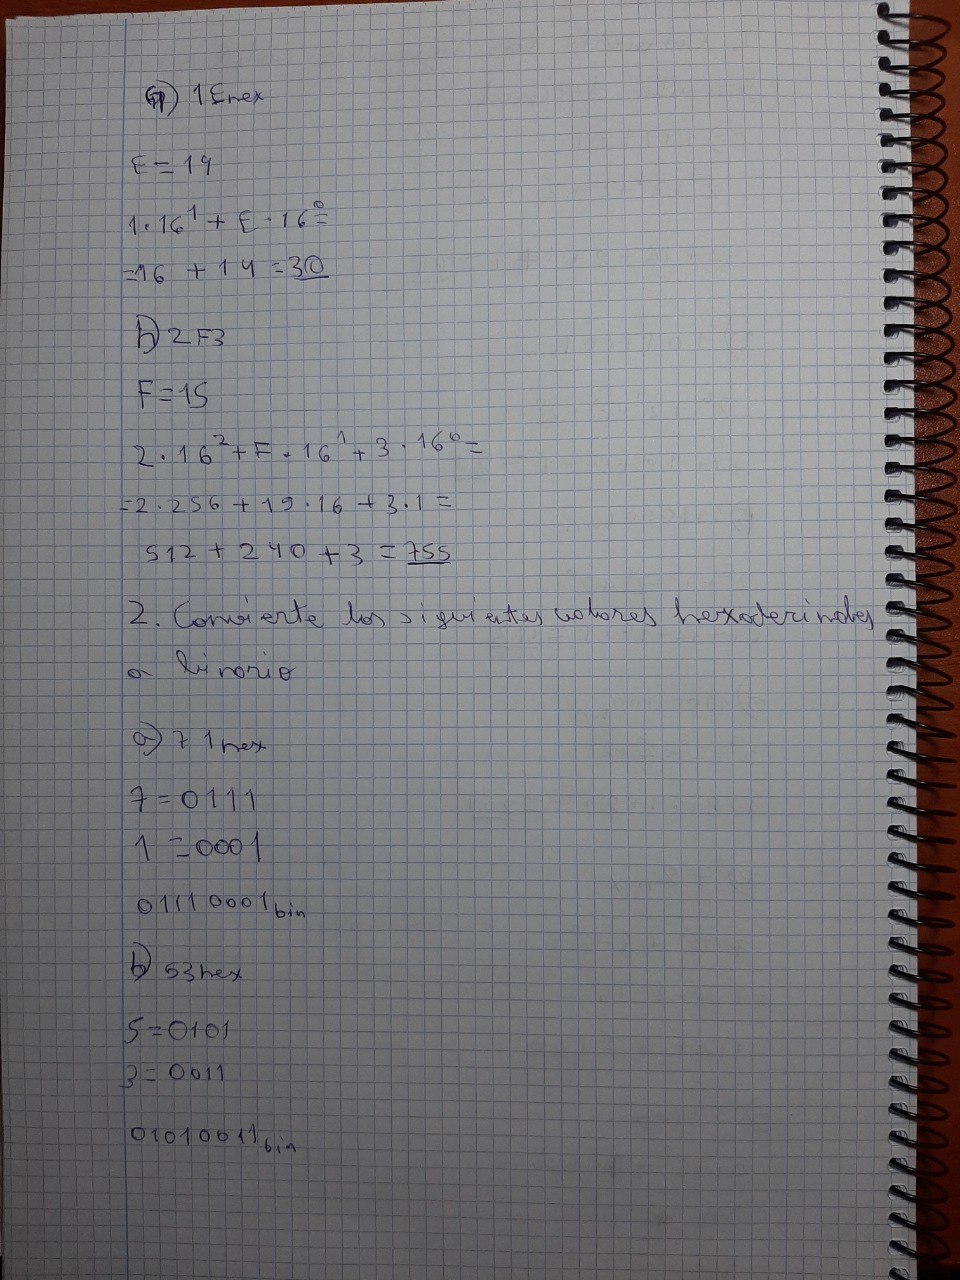 a) 1Ehex
E = 14
1·16¹ + E·16⁰ =
=16 + 14 = 30
b) 2F3
F = 15
2·16² + F·16¹ + 3·16⁰ =
=2·256 + 15·16 + 3·1 =
512 + 240 + 3 = 755
2. Convierte los siguientes valores hexadecimales
a binario
a) 71hex
7 = 0111
1 = 0001
01110001bin
b) 53hex
5 = 0101
3 = 0011
01010011bin